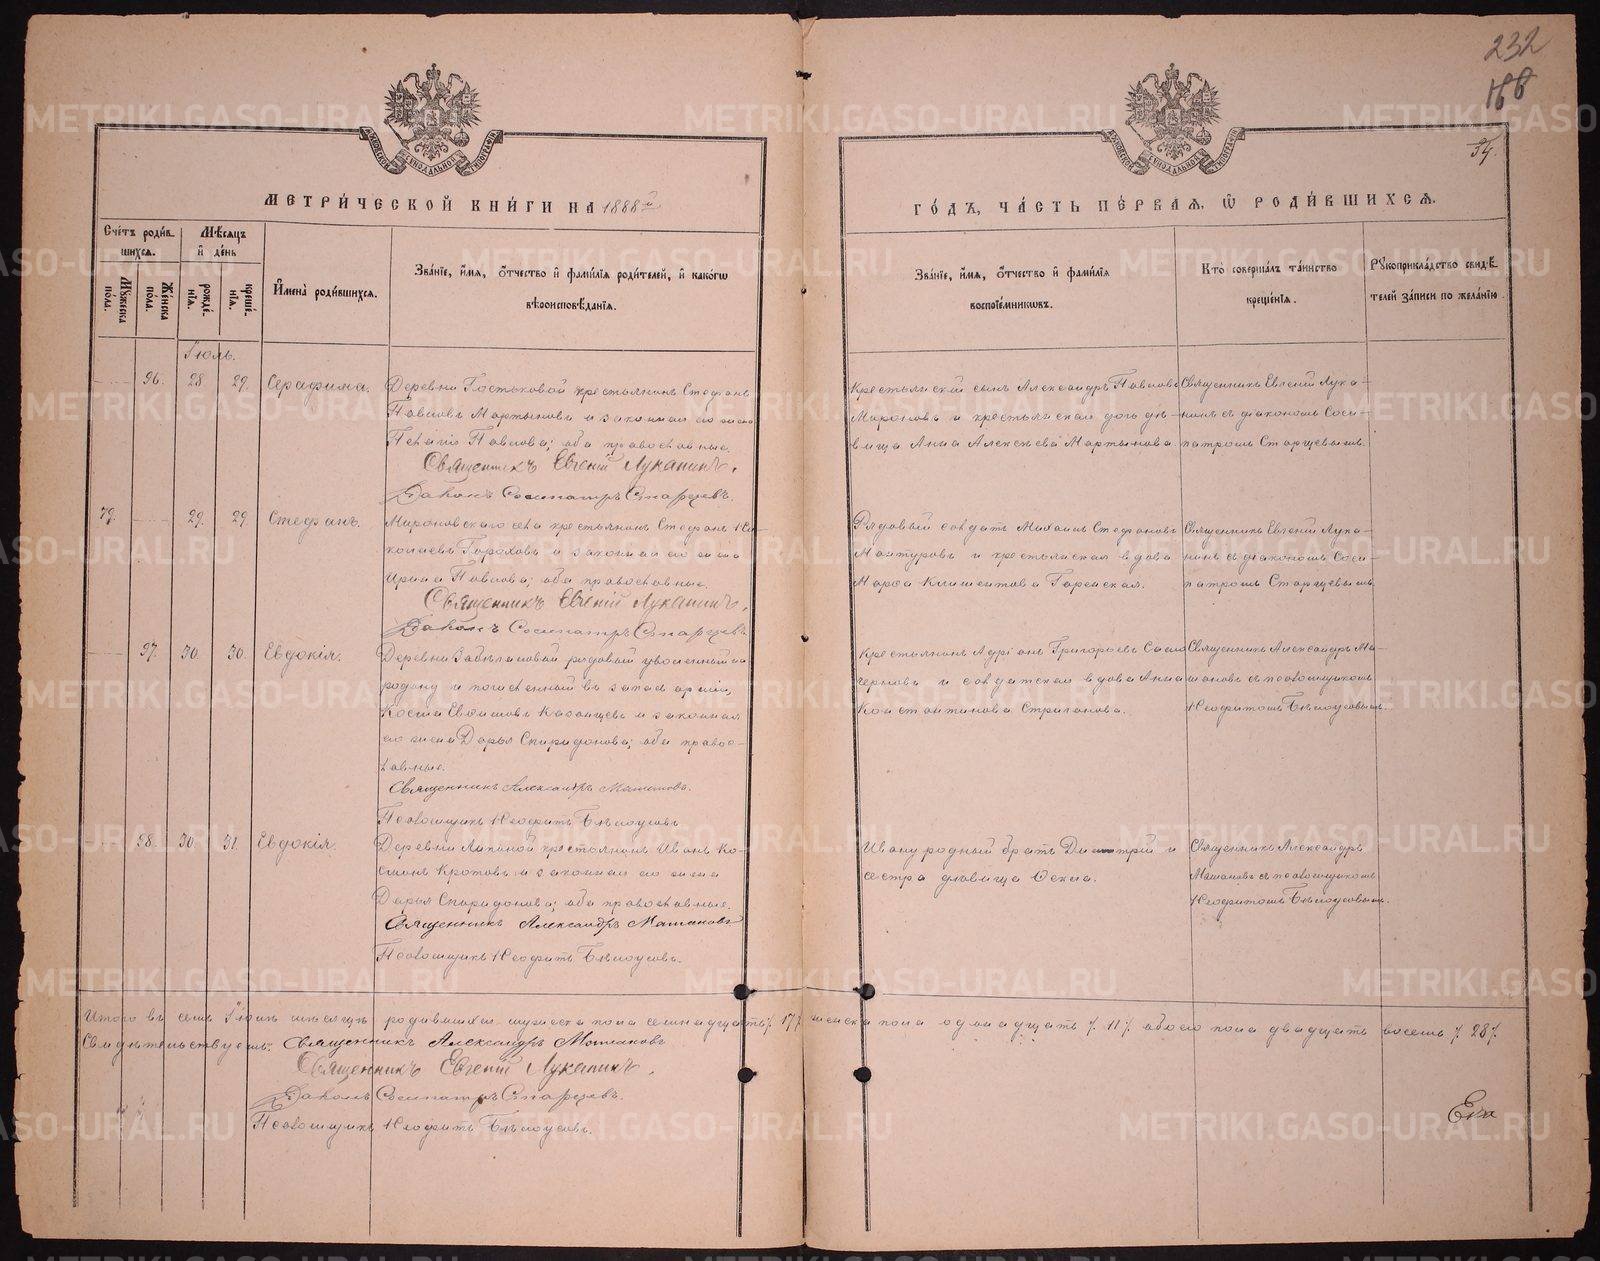 232
54.
МЕТРИ́ЧЕСКОЙ КНИ́ГИ НА 1888й
ГО́ДЪ, ЧА́СТЬ ПЕ́РВАЯ, Ѿ РОДИ́ВШИХСЯ.
Сче́тъ роди́вшихся.
Му́жеска по́ла.
Же́нска по́ла.
Мѣ́сяцъ и де́нь
рожде́нїя.
креще́нїя.
И́мена роди́вшихся.
Зва́нїе, и́мя, о́тчество и фами́лїя роди́телей, и како́гѡ
вѣроисповѣ́данїя.
Зва́нїе, и́мя, о́тчество и фами́лїя
воспрїе́мниковъ.
Кто̀ соверша́лъ та́инство
креще́нїя.
Рукоприкла́дство свидѣ́
телей за́писи по жела́нїю.
Іюль.
96. 28 29. Серафима.
Деревни Гостьковой крестьянинъ Стефанъ
Павловъ Мартыновъ и законная его жена
Пелагія Павлова; оба православные.
Священникъ Евгеній Луканинъ.
Діаконъ Сосипатръ Старцевъ.
Крестьянскій сынъ Александръ Павловъ
Мироновъ и крестьянская дочь дѣ-
вица Анна Алексѣева Мартынова
Священникъ Евгеній Лука-
нинъ съ діакономъ Соси-
патромъ Старцевымъ.
79. 29. 29. Стефанъ.
Мироновскаго села крестьянинъ Стефанъ Ни-
колаевъ Гороховъ и законная его жена
Ирина Павлова; оба православные.
Священникъ Евгеній Луканинъ.
Діаконъ Сосипатръ Старцевъ
Рядовый солдатъ Михаилъ Стефановъ
Мантуровъ и крестьянская вдова
Марѳа Климентова
Священникъ Евгеній Лука-
нинъ съ діакономъ Соси-
патромъ Старцевымъ.
97. 30. 30. Евдокія.
Деревни рядовый уволенный на
родину и численный въ запасъ арміи,
Косма Евѳимовъ и законная
его жена Дарья Спиридонова; оба право-
славные.
Священникъ Александръ
Псаломщикъ Неофитъ Бѣлоусовъ
Крестьянинъ Адріанъ Григорьевъ
и солдатская вдова Анна
Константинова Стриганова.
Священникъ Александръ
съ псаломщикомъ
Неофитомъ Бѣлоусовымъ.
98. 30. 31. Евдокія.
Деревни крестьянинъ Иванъ
Кротовъ и законная его жена
Дарья Спиридонова; оба православные.
Священникъ Александръ
Псаломщикъ Неофитъ Бѣлоусовъ.
Ивану родный братъ Димитрій и
сестра дѣвица
Священникъ Александръ
съ псаломщикомъ
Неофитомъ Бѣлоусовымъ.
Итого въ семъ Іюлѣ мѣсяцѣ родившихся мужеска пола семнадцать /17/ женска пола одинадцать /11/. обоего пола двадцать восемь /28/.
Свидѣтельствуемъ: Священникъ Александръ
Священникъ Евгеній Луканинъ.
Діаконъ Сосипатръ Старцевъ.
Псаломщикъ Неофитъ Бѣлоусовъ.
METRIKI.GASO-URAL.RU